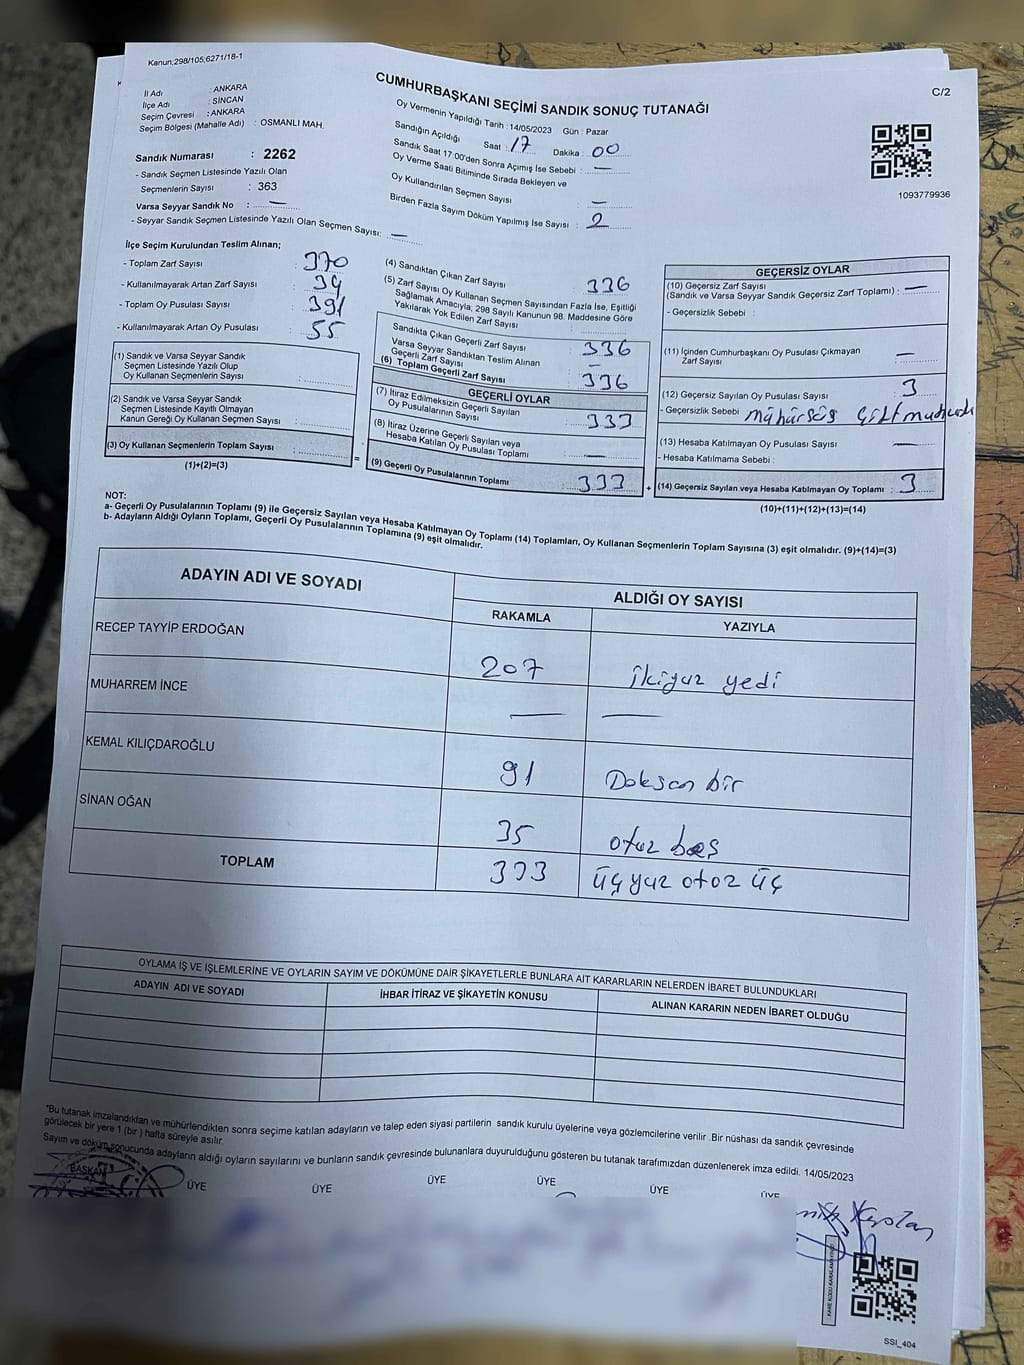 Kanun:298/105;6271/18-1
C/2
CUMHURBAŞKANI SEÇİMİ SANDIK SONUÇ TUTANAĞI
İl Adı : ANKARA
İlçe Adı : SİNCAN
Seçim Çevresi : ANKARA
Seçim Bölgesi (Mahalle Adı) : OSMANLI MAH.
Sandık Numarası : 2262
- Sandık Seçmen Listesinde Yazılı Olan
Seçmenlerin Sayısı : 363
Varsa Seyyar Sandık No : —
- Seyyar Sandık Seçmen Listesinde Yazılı Olan Seçmen Sayısı: —
Oy Vermenin Yapıldığı Tarih : 14/05/2023 Gün : Pazar
Sandığın Açıldığı Saat : 17 Dakika : 00
Sandık Saat 17:00'den Sonra Açımış İse Sebebi : —
Oy Verme Saati Bitiminde Sırada Bekleyen ve
Oy Kullandırılan Seçmen Sayısı —
Birden Fazla Sayım Döküm Yapılmış İse Sayısı : 2
1093779936
İlçe Seçim Kurulundan Teslim Alınan;
- Toplam Zarf Sayısı : 370
- Kullanılmayarak Artan Zarf Sayısı : 34
- Toplam Oy Pusulası Sayısı : 391
- Kullanılmayarak Artan Oy Pusulası : 55
(1) Sandık ve Varsa Seyyar Sandık
Seçmen Listesinde Yazılı Olup
Oy Kullanan Seçmenlerin Sayısı :
(2) Sandık ve Varsa Seyyar Sandık
Seçmen Listesinde Kayıtlı Olmayan
Kanun Gereği Oy Kullanan Seçmen Sayısı :
(3) Oy Kullanan Seçmenlerin Toplam Sayısı :
(1)+(2)=(3)
=
(4) Sandıktan Çıkan Zarf Sayısı : 336
(5) Zarf Sayısı Oy Kullanan Seçmen Sayısından Fazla İse, Eşitliği
Sağlamak Amacıyla; 298 Sayılı Kanunun 98. Maddesine Göre
Yakılarak Yok Edilen Zarf Sayısı :
Sandıkta Çıkan Geçerli Zarf Sayısı : 336
Varsa Seyyar Sandıktan Teslim Alınan
Geçerli Zarf Sayısı : —
(6) Toplam Geçerli Zarf Sayısı : 336
GEÇERLİ OYLAR
(7) İtiraz Edilmeksizin Geçerli Sayılan
Oy Pusulalarının Sayısı : 333
(8) İtiraz Üzerine Geçerli Sayılan veya
Hesaba Katılan Oy Pusulası Toplamı : —
(9) Geçerli Oy Pusulalarının Toplamı : 333
+
GEÇERSİZ OYLAR
(10) Geçersiz Zarf Sayısı
(Sandık ve Varsa Seyyar Sandık Geçersiz Zarf Toplamı) : —
- Geçersizlik Sebebi :
(11) İçinden Cumhurbaşkanı Oy Pusulası Çıkmayan
Zarf Sayısı : —
(12) Geçersiz Sayılan Oy Pusulası Sayısı : 3
- Geçersizlik Sebebi mühürsüs Çift
(13) Hesaba Katılmayan Oy Pusulası Sayısı —
- Hesaba Katılmama Sebebi :
(14) Geçersiz Sayılan veya Hesaba Katılmayan Oy Toplamı : 3
(10)+(11)+(12)+(13)=(14)
NOT:
a- Geçerli Oy Pusulalarının Toplamı (9) ile Geçersiz Sayılan veya Hesaba Katılmayan Oy Toplamı (14) Toplamları, Oy Kullanan Seçmenlerin Toplam Sayısına (3) eşit olmalıdır. (9)+(14)=(3)
b- Adayların Aldığı Oyların Toplamı, Geçerli Oy Pusulalarının Toplamına (9) eşit olmalıdır.
ADAYIN ADI VE SOYADI
ALDIĞI OY SAYISI
RAKAMLA YAZIYLA
RECEP TAYYİP ERDOĞAN 207 ikiyuz yedi
MUHARREM İNCE — —
KEMAL KILIÇDAROĞLU 91 Doksan bir
SİNAN OĞAN 35 otuz beş
TOPLAM 333 üçyuz otoz üç
OYLAMA İŞ VE İŞLEMLERİNE VE OYLARIN SAYIM VE DÖKÜMÜNE DAİR ŞİKAYETLERLE BUNLARA AİT KARARLARIN NELERDEN İBARET BULUNDUKLARI
ADAYIN ADI VE SOYADI İHBAR İTİRAZ VE ŞİKAYETİN KONUSU ALINAN KARARIN NEDEN İBARET OLDUĞU
*Bu tutanak imzalandıktan ve mühürlendikten sonra seçime katılan adayların ve talep eden siyasi partilerin sandık kurulu üyelerine veya gözlemcilerine verilir. Bir nüshası da sandık çevresinde
görülecek bir yere 1 (bir) hafta süreyle asılır.
Sayım ve döküm sonucunda adayların aldığı oyların sayılarını ve bunların sandık çevresinde bulunanlara duyurulduğunu gösteren bu tutanak tarafımızdan düzenlenerek imza edildi. 14/05/2023
BAŞKAN ÜYE ÜYE ÜYE ÜYE ÜYE ÜYE
SSI_404